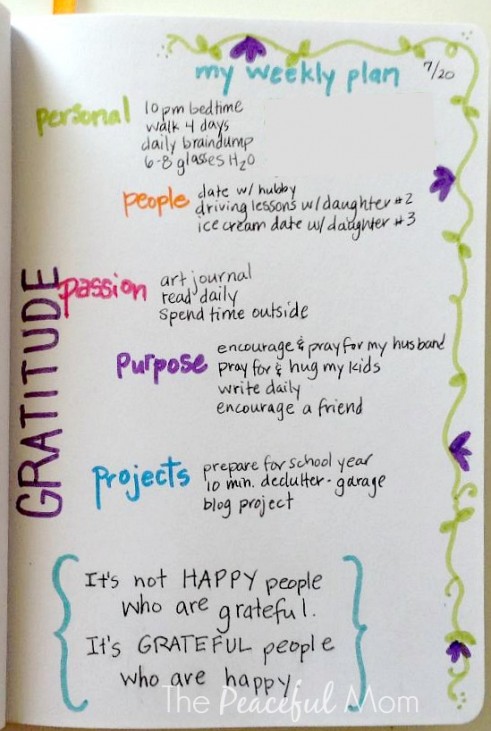 my weekly plan 7/20
personal
10 pm bedtime
walk 4 days
daily braindump
6-8 glasses H₂O
people
date w/ hubby
driving lessons w/ daughter #2
ice cream date w/ daughter #3
GRATITUDE
passion
art journal
read daily
spend time outside
purpose
encourage & pray for my husband
pray for & hug my kids
write daily
encourage a friend
projects
prepare for school year
10 min. declutter - garage
blog project
It's not HAPPY people
who are grateful.
It's GRATEFUL people
who are happy.
The Peaceful Mom